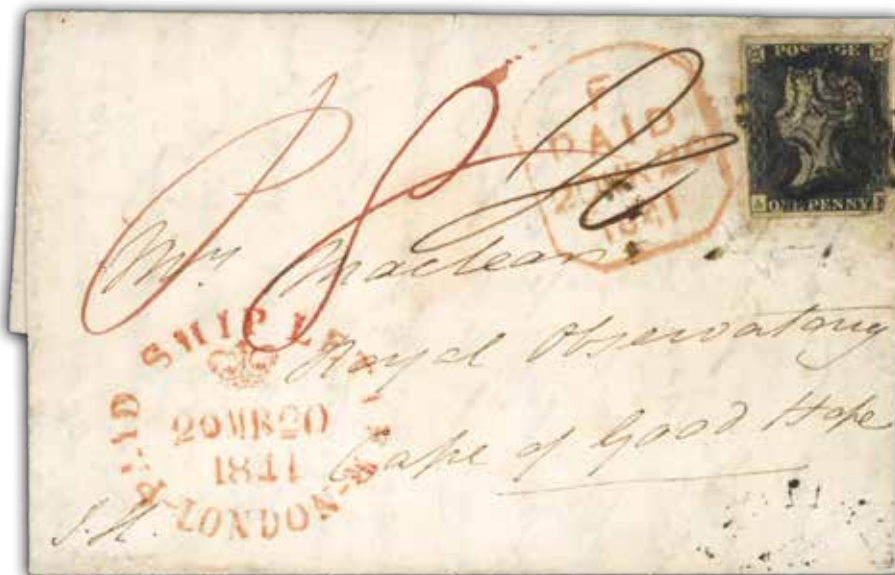 POSTAGE
ONE PENNY
PAID
1841
P 8
Mrs Maclean
Royal Observatory
Cape of Good Hope
PAID SHIP LETTER LONDON
20 MR 20
1841